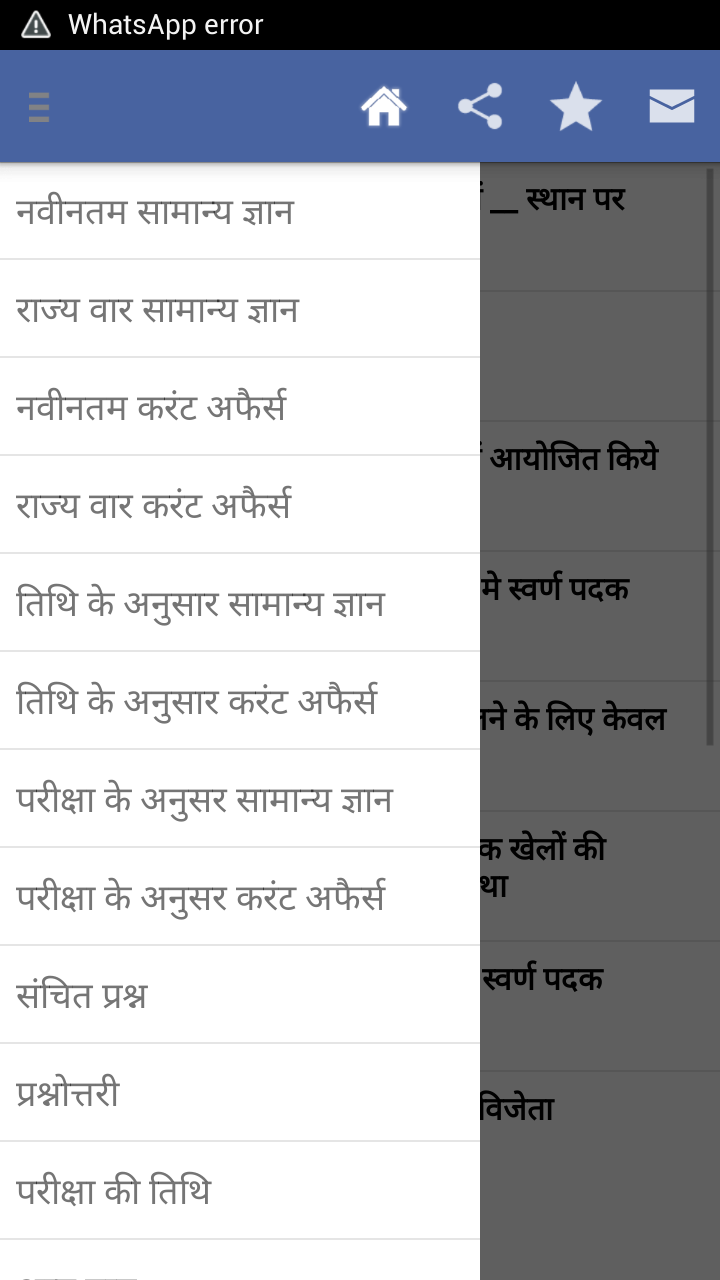 WhatsApp error
नवीनतम सामान्य ज्ञान
राज्य वार सामान्य ज्ञान
नवीनतम करंट अफैर्स
राज्य वार करंट अफैर्स
तिथि के अनुसार सामान्य ज्ञान
तिथि के अनुसार करंट अफैर्स
परीक्षा के अनुसर सामान्य ज्ञान
परीक्षा के अनुसर करंट अफैर्स
संचित प्रश्न
प्रश्नोत्तरी
परीक्षा की तिथि
__ स्थान पर
आयोजित किये
मे स्वर्ण पदक
के लिए केवल
खेलों की
स्वर्ण पदक
विजेता